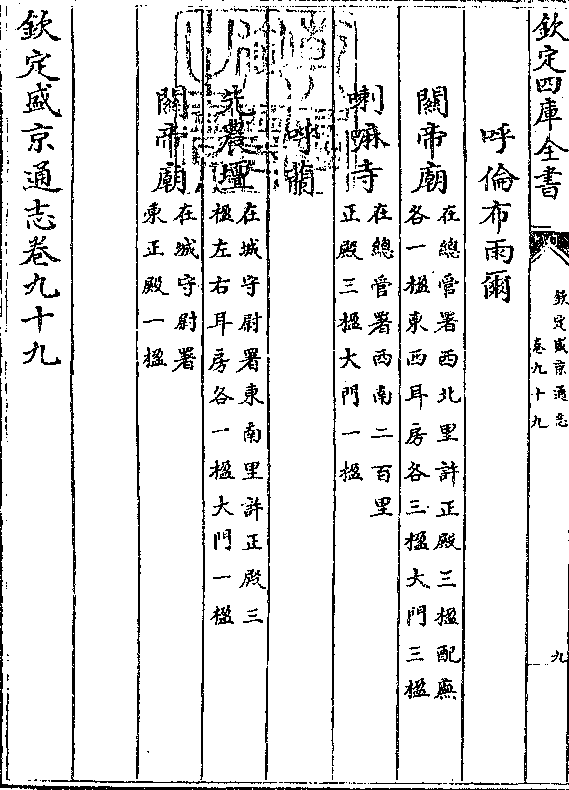 欽定四庫全書
欽定盛京通志
卷九十九
九
呼倫布雨爾
關帝廟
在總管署西北里許正殿三楹配廡
各一楹東西耳房各三楹大門三楹
喇嘛寺
在總管署西南二百里
正殿三楹大門一楹
呼蘭
先農壇
在城守尉署東南里許正殿三
楹左右耳房各一楹大門一楹
關帝廟
在城守尉署
東正殿一楹
欽定盛京通志卷九十九